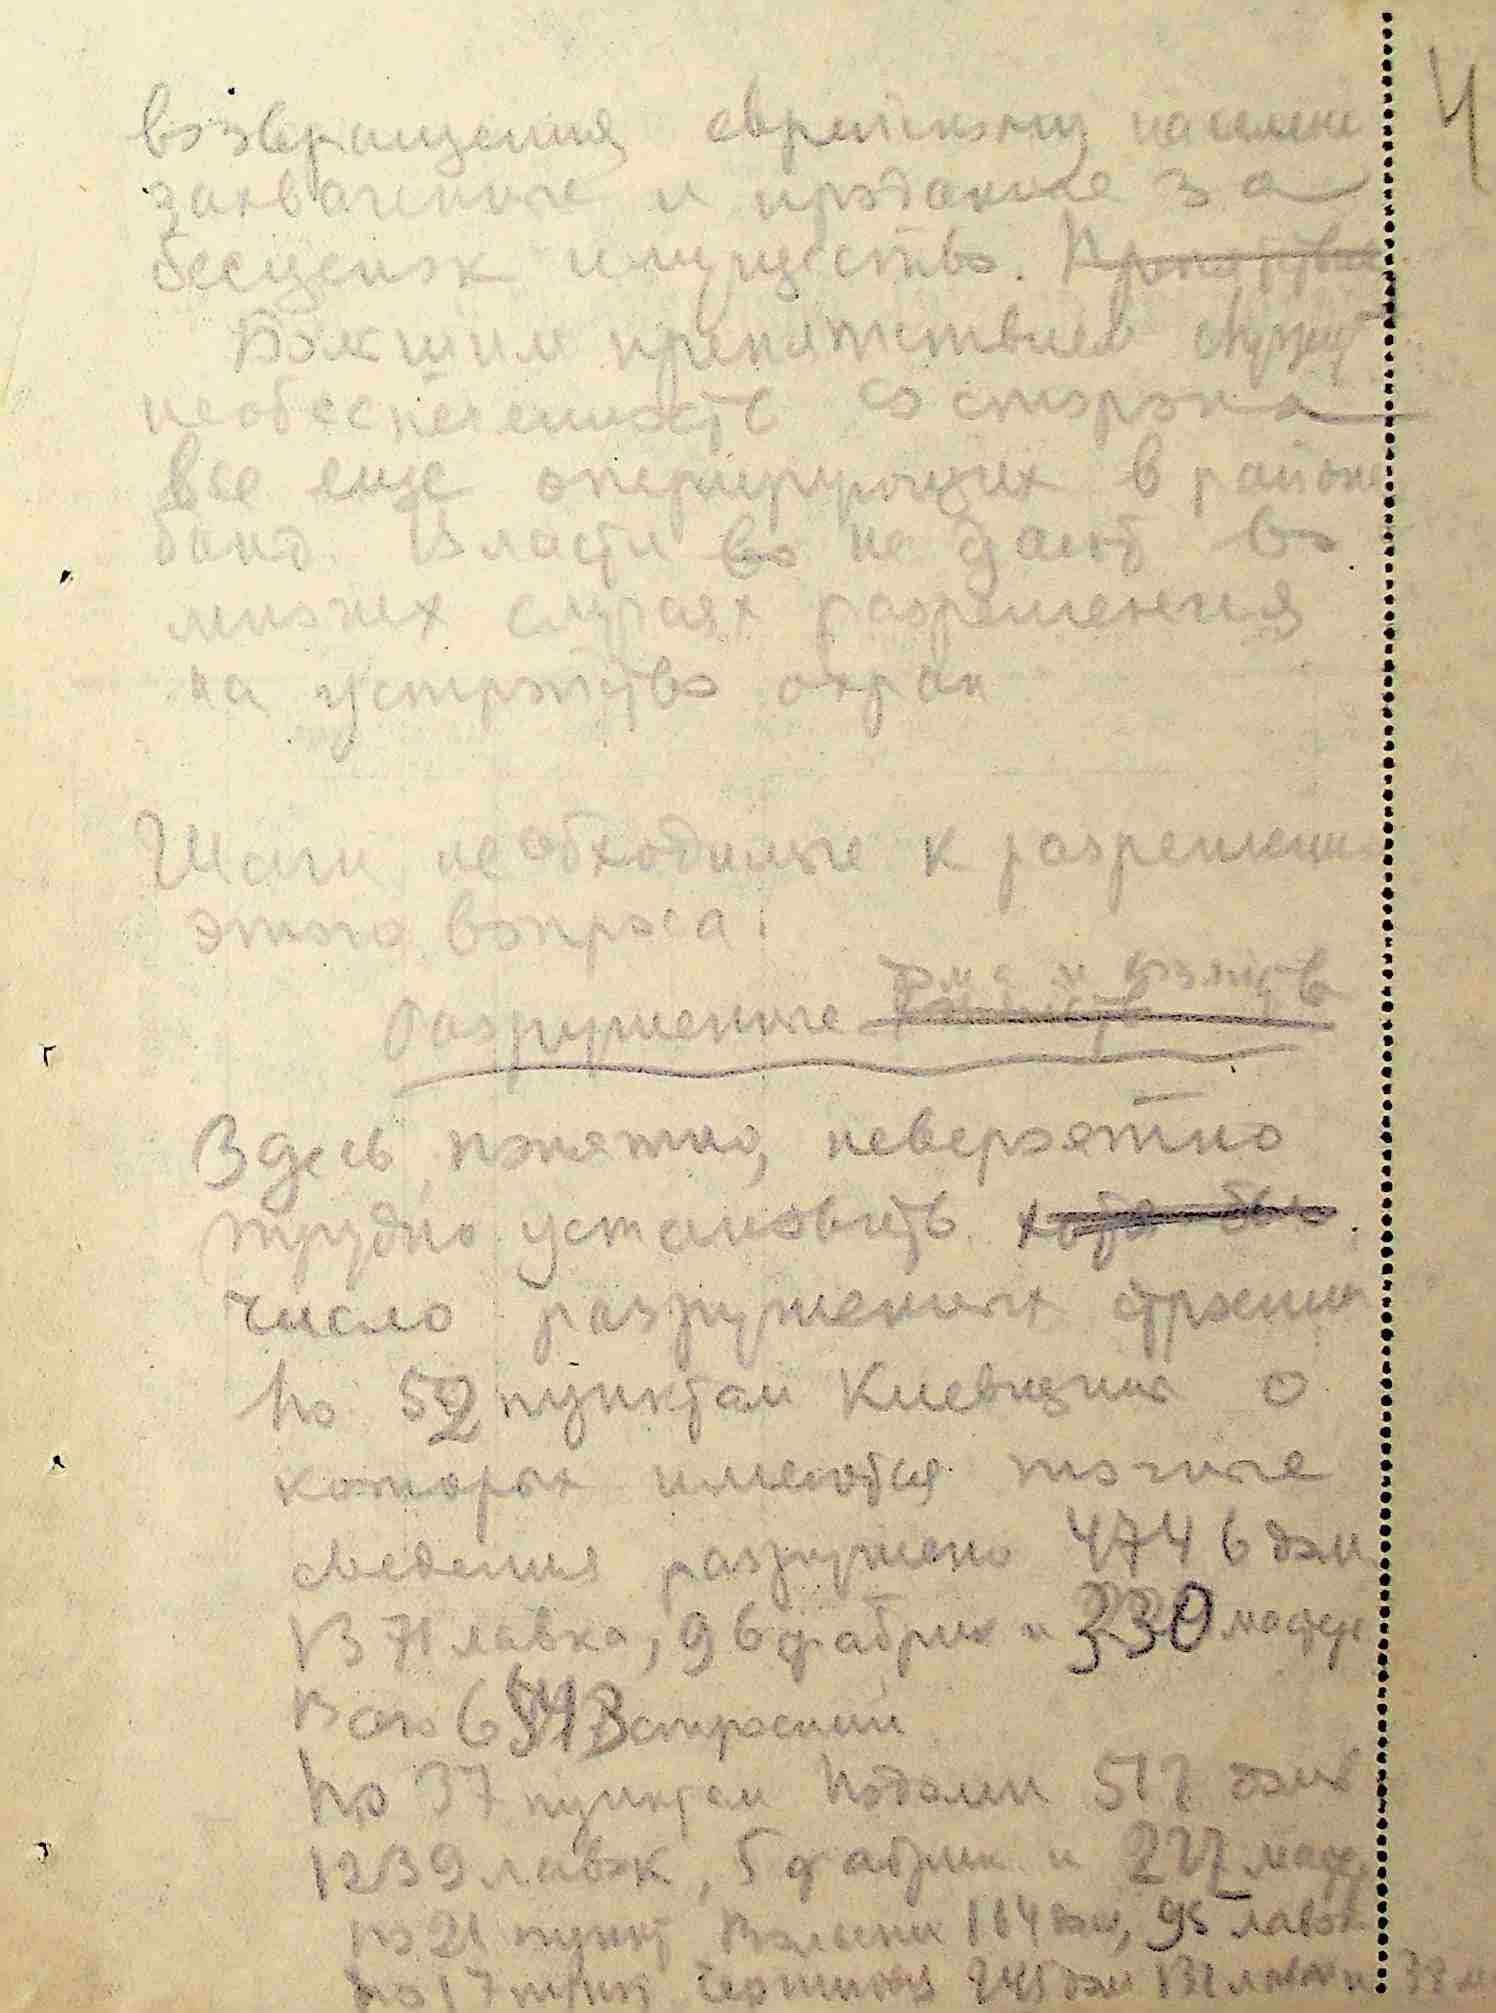 4
возвращения еврейскому населен
захваченное и проданное за
бесценок имущество. Препятстви
Большим препятствием служит
необеспеченность со сторона
все еще оперирующих в районе
банд. Власти во не дают во
многих случаях разрешения
на устройство охран
Шаги необходимые к разрешени
этого вопроса.
дома и хозяйств
Разрушенные
Здесь, понятно, невероятно
трудно установить хотя бы
число разрушенных строени
По 52 пунктам Киевщины о
которых имеются точные
сведения разрушено 4746 дом
1371 лавка, 96 фабрик и 330 масте
Всего 6543 строений
По 37 пунктам Подолии 512 домов
1239 лавок, 5 фабрик и 227 маст
по 21 пункт Волыни 114 дом, 95 лавок
по 17 пунк Чернигов 245 дом 131 лавок и 38 м